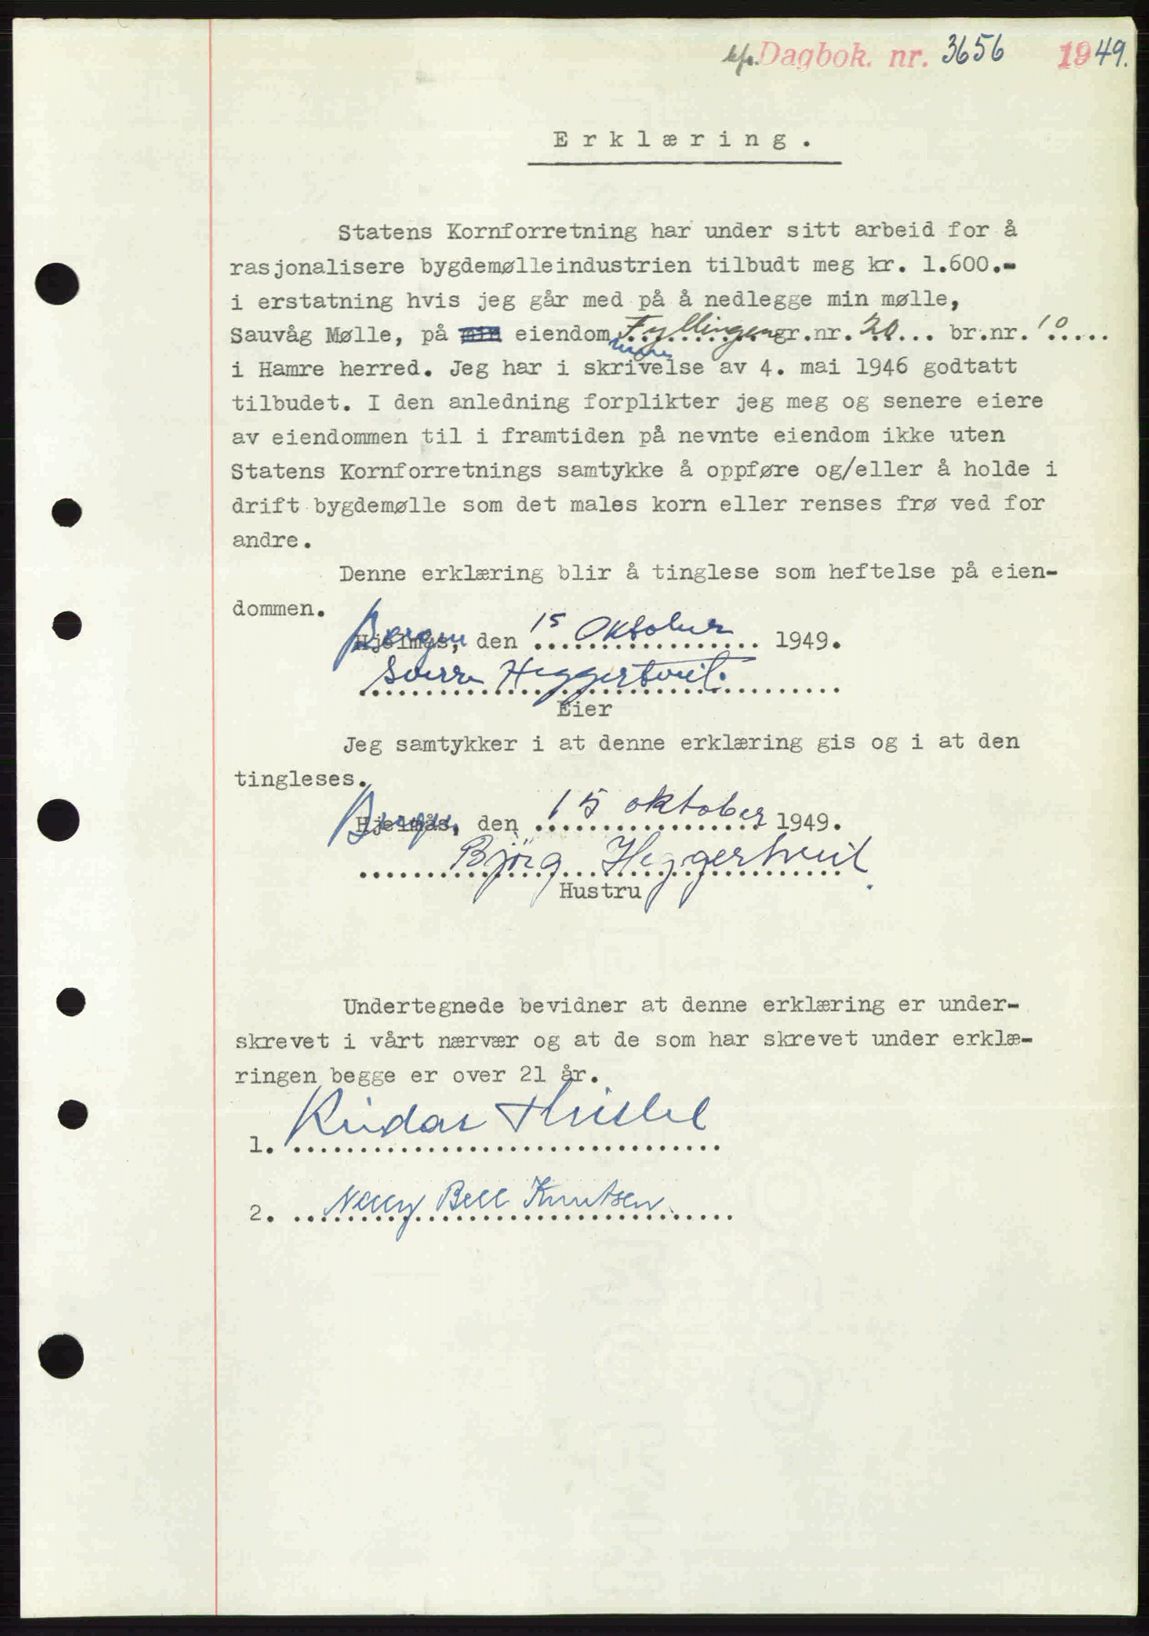 kfr. Dagbok. nr. 3656 1949.
Erklæring.
Statens Kornforretning har under sitt arbeid for å
rasjonalisere bygdemølleindustrien tilbudt meg kr. 1.600.-
i erstatning hvis jeg går med på å nedlegge min mølle,
Sauvåg Mølle, på min eiendom Fyllingen gr.nr. 20... br.nr. 10.....
i Hamre herred. Jeg har i skrivelse av 4. mai 1946 godtatt
tilbudet. I den anledning forplikter jeg meg og senere eiere
av eiendommen til i framtiden på nevnte eiendom ikke uten
Statens Kornforretnings samtykke å oppføre og/eller å holde i
drift bygdemølle som det males korn eller renses frø ved for
andre.
Denne erklæring blir å tinglese som heftelse på eien-
dommen.
Bergen Hjelmås, den 15 Oktober 1949.
Sverre Heggertveit.
Eier
Jeg samtykker i at denne erklæring gis og i at den
tingleses.
Bergen Hjelmås, den 15 oktober 1949.
Björg Heggertveit
Hustru
Undertegnede bevidner at denne erklæring er under-
skrevet i vårt nærvær og at de som har skrevet under erklæ-
ringen begge er over 21 år.
1.
2. Nelly Bell Knutsen